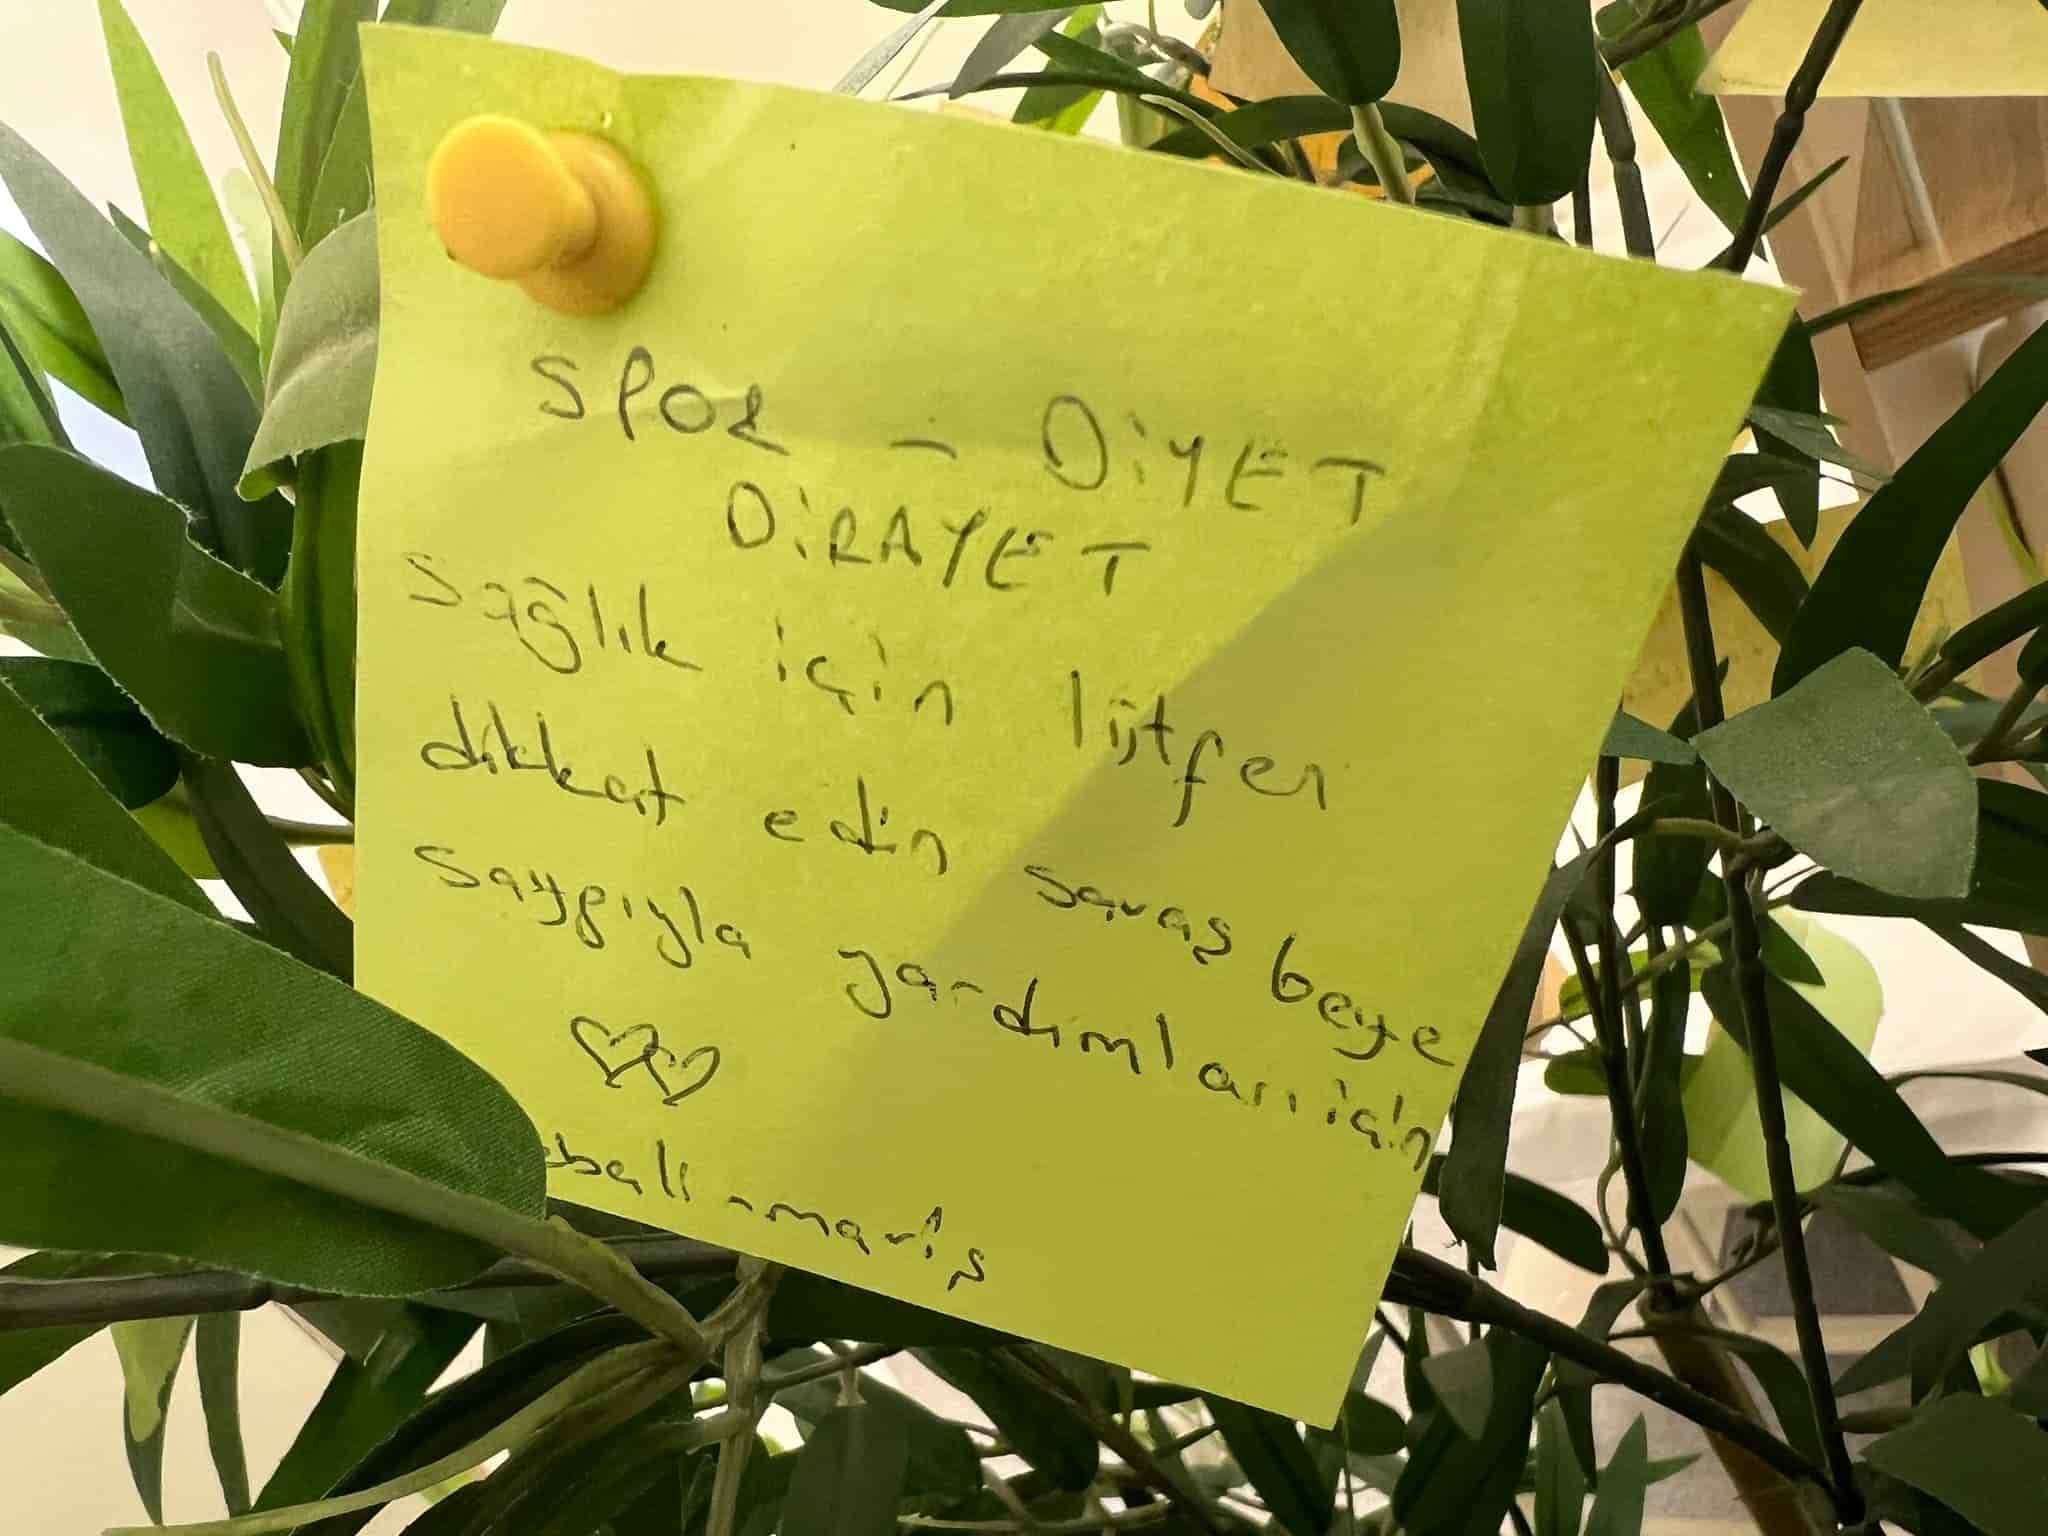 SPOR - DİYET
DİRAYET
Sağlık için lütfen
dikkat edin savaş beye
saygıyla yardımları için